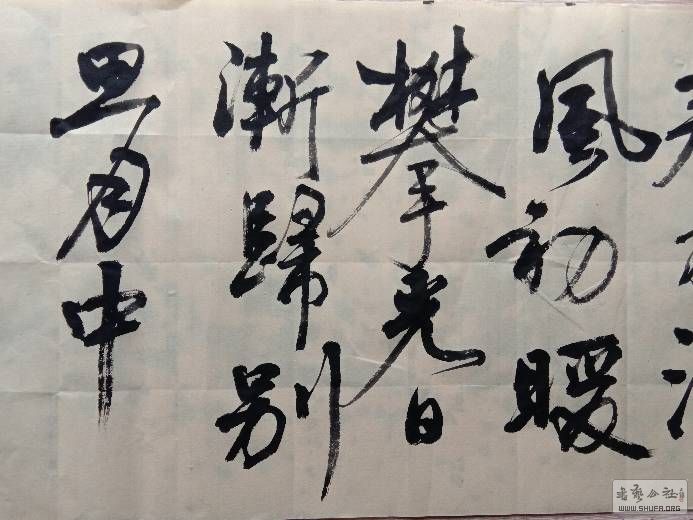 風初暖
攀光日
漸歸別
月中
书艺公社
WWW.SHUFA.ORG